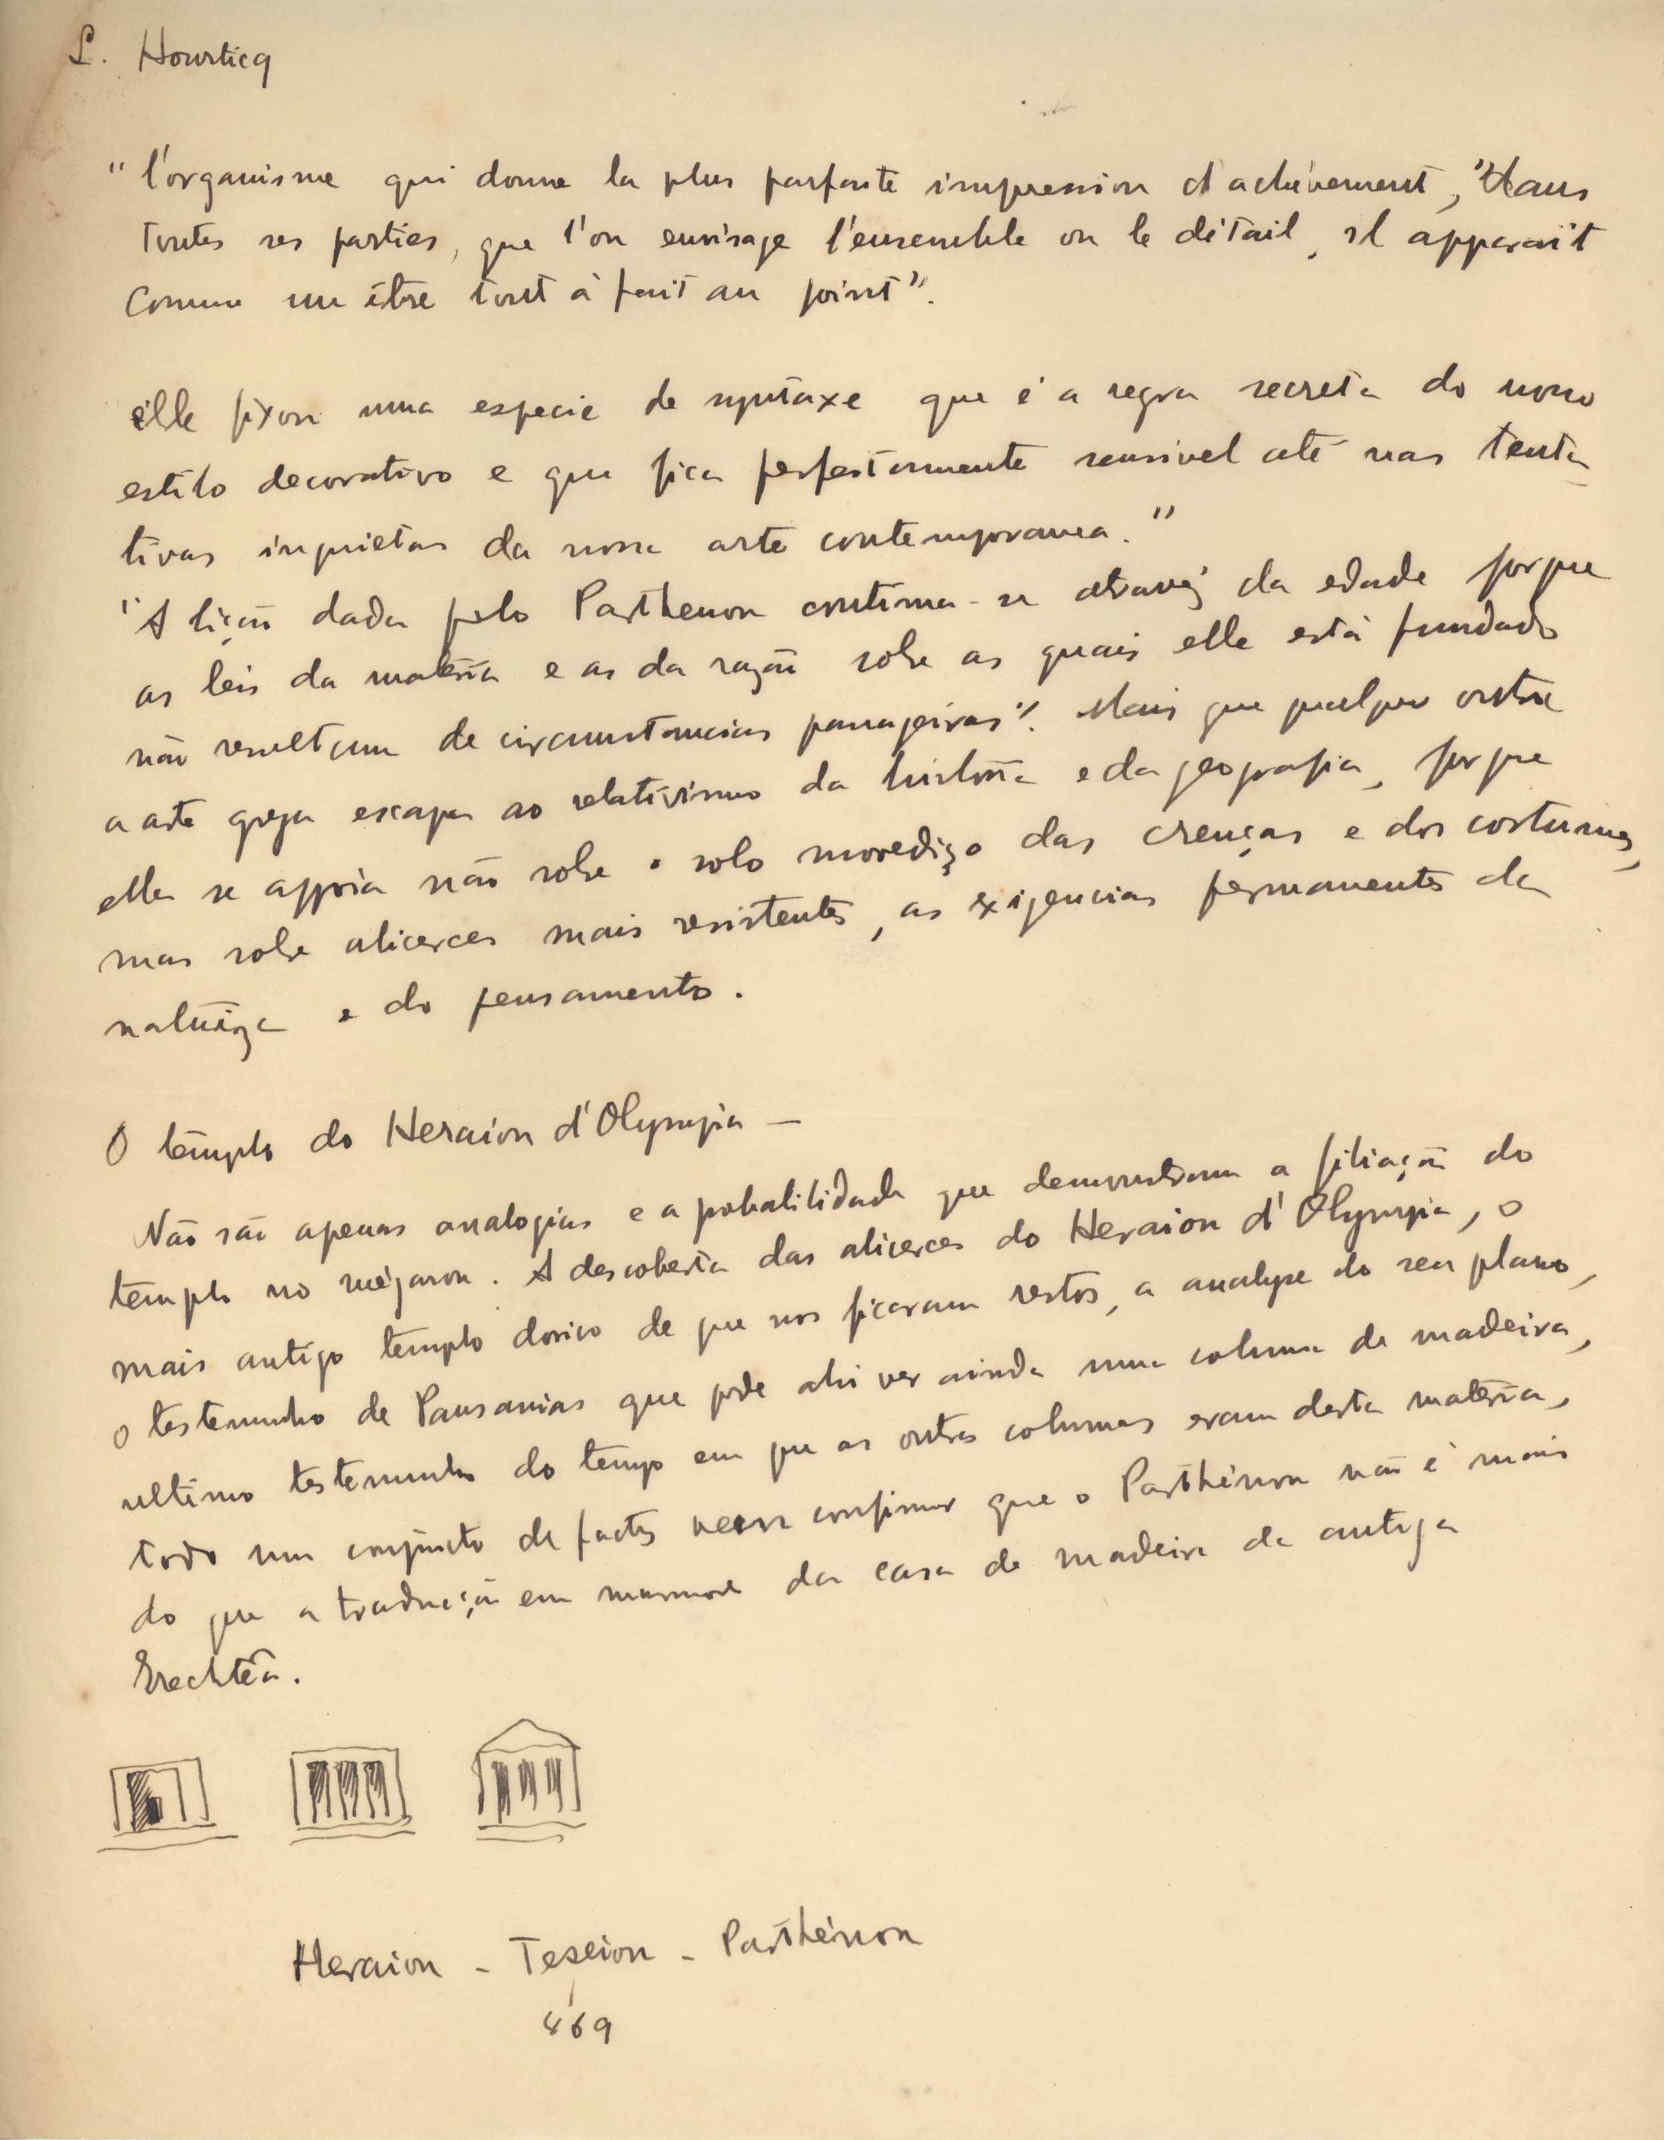 L. Hourticq
"l'organisme qui donne la plus parfaite impression d'achèvement, "dans
toutes ses parties, que l'on envisage l'ensemble ou le détail, il apparaît
comme un être tout à fait au point".
elle fixou uma especie de syntaxe que é a regra secreta do nosso
estilo decorativo e que fica perfeitamente sensivel até nas tenta-
tivas inquietas da nossa arte contemporanea."
"A lição dada pelo Parthenon continua-se através da edade porque
as leis da materia e as da razão sobre as quais elle está fundado
não resultam de circumstancias passageiras". Mais que qualquer outra
a arte grega escapa ao relativismo da historia e da geografia, porque
ella se appoia não sobre o solo movediço das crenças e dos costumes,
mas sobre alicerces mais resistentes, as exigencias permanentes da
natureza e do pensamento.
O templo do Heraion d'Olympia —
Não são apenas analogias e a probabilidade que demonstram a filiação do
templo no mégaron. A descoberta das alicerces do Heraion d'Olympia, o
mais antigo templo dorico de que nos ficaram restos, a analyse do seu plano,
o testemunho de Pausanias que pode ahi ver ainda uma coluna de madeira,
ultimo testemunho do tempo em que as outras columnas eram desta materia,
todo um conjuncto de factos vem confirmar que o Parthénon não é mais
do que a traducção em marmore da casa de madeira de antiga
Erechtêa.
Heraion - Teseion - Parthénon
469